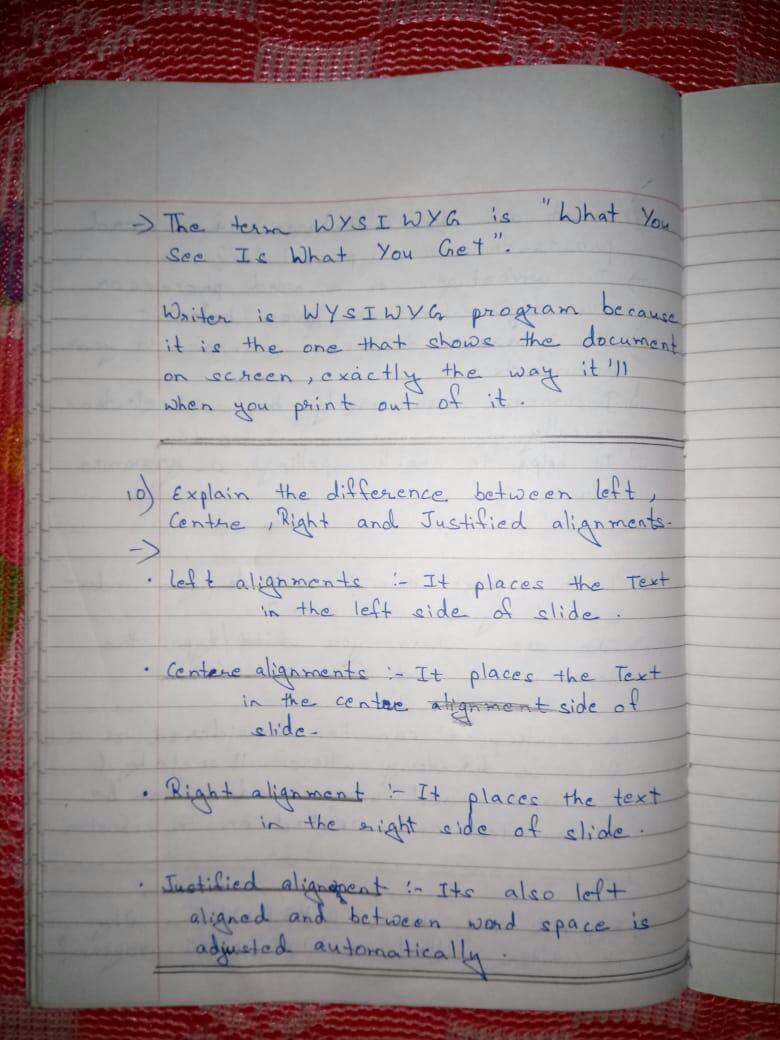 -> The term WYSIWYG is "What You
See Is What You Get".
Writer is WYSIWYG program because
it is the one that shows the document
on screen, exactly the way it'll
when you print out of it.
10) Explain the difference between left,
Centre, Right and Justified alignments.
->
• left alignments :- It places the Text
in the left side of slide.
• Centere alignments :- It places the Text
in the centre alignment side of
slide.
• Right alignment :- It places the text
in the right side of slide.
• Justified alignment :- Its also left
aligned and between word space is
adjusted automatically.